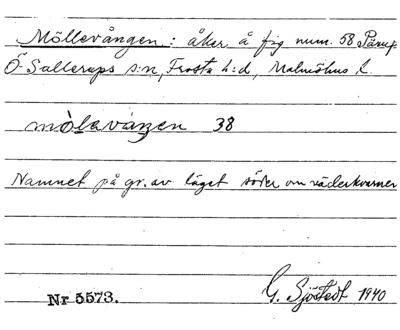 Möllevången: åker å fig num. 58 Pärup
Ö. Sallerups s:n, Frosta h:d, Malmöhus l.
mòlavàŋen 38
Namnet på gr. av läget söder om väderkvarnen
Nr 5573. G. Sjöstedt 1940